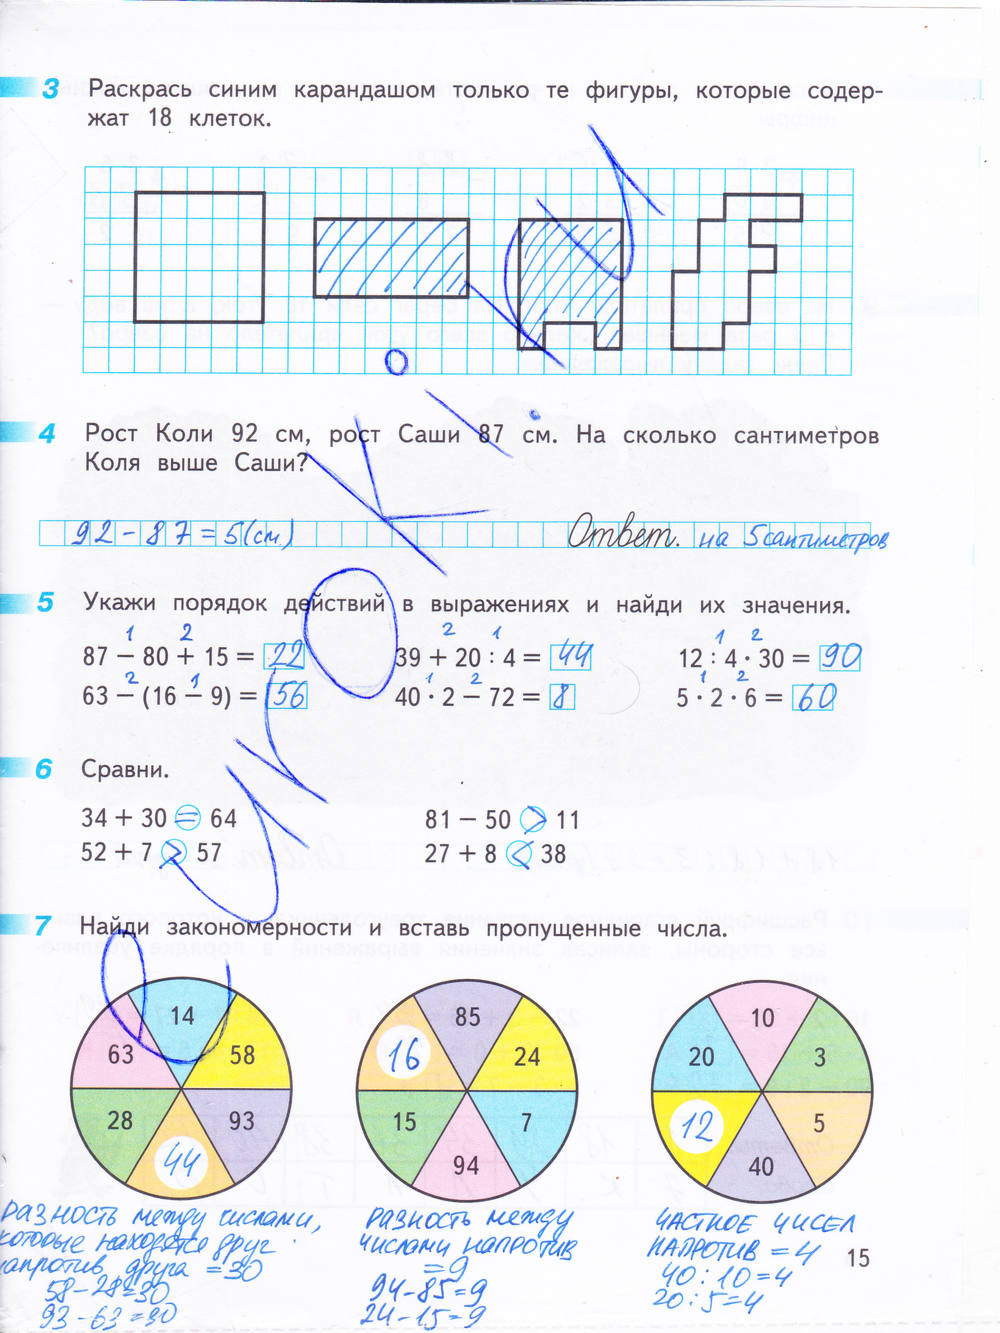 3 Раскрась синим карандашом только те фигуры, которые содер-
жат 18 клеток.
4 Рост Коли 92 см, рост Саши 87 см. На сколько сантиметров
Коля выше Саши?
92 - 87 = 5 (см) Ответ. на 5 сантиметров
5 Укажи порядок действий в выражениях и найди их значения.
1 2 2 1 1 2
87 − 80 + 15 = 22 39 + 20 : 4 = 44 12 : 4 · 30 = 90
2 1 1 2 1 2
63 − (16 − 9) = 56 40 · 2 − 72 = 8 5 · 2 · 6 = 60
6 Сравни.
34 + 30 = 64 81 − 50 > 11
52 + 7 > 57 27 + 8 < 38
7 Найди закономерности и вставь пропущенные числа.
14 85 10
63 58 16 24 20 3
28 93 15 7 12 5
44 94 40
Разность между числами,
которые находятся друг
напротив друга = 30
58 - 28 = 30
93 - 63 = 30
Разность между
числами напротив
= 9
94 - 85 = 9
24 - 15 = 9
Частное чисел
напротив = 4
40 : 10 = 4
20 : 5 = 4
15